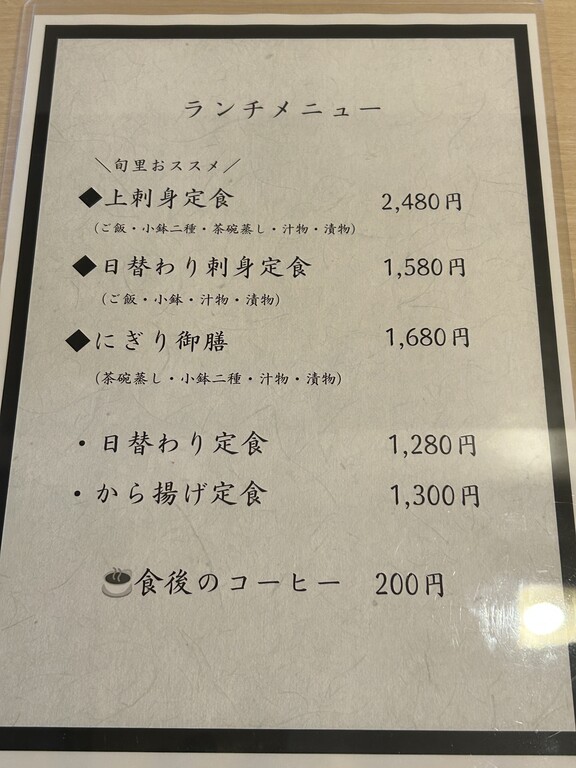 ランチメニュー
＼旬里おススメ／
◆上刺身定食 2,480円
（ご飯・小鉢二種・茶碗蒸し・汁物・漬物）
◆日替わり刺身定食 1,580円
（ご飯・小鉢・汁物・漬物）
◆にぎり御膳 1,680円
（茶碗蒸し・小鉢二種・汁物・漬物）
・日替わり定食 1,280円
・から揚げ定食 1,300円
食後のコーヒー 200円